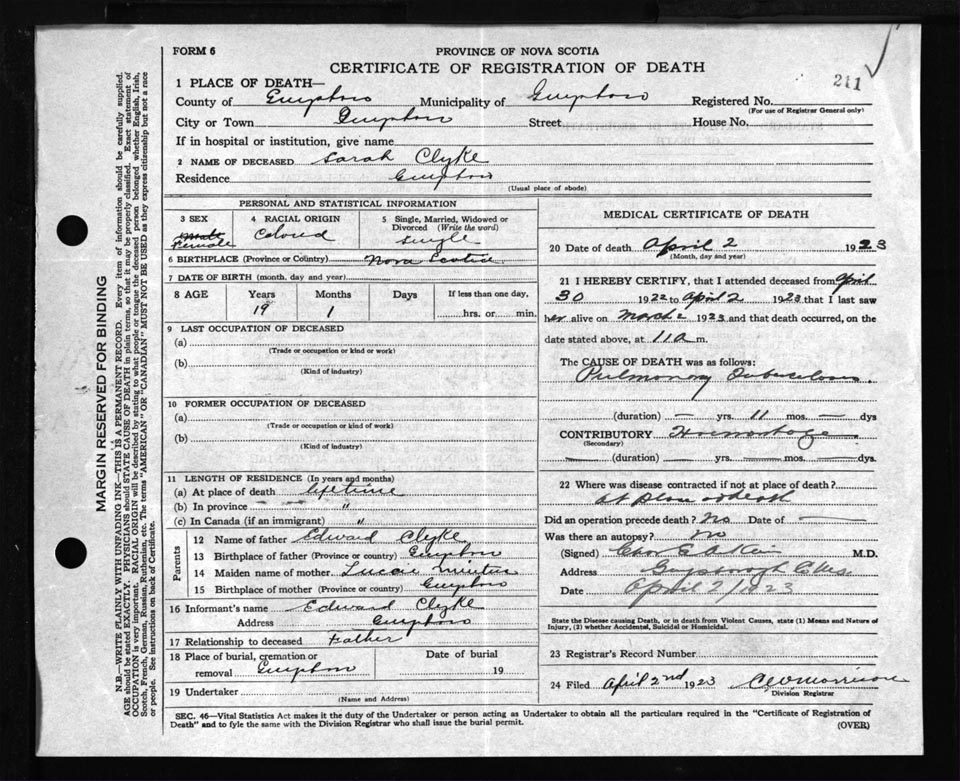 FORM 6
PROVINCE OF NOVA SCOTIA
CERTIFICATE OF REGISTRATION OF DEATH
211
1 PLACE OF DEATH—
County of Municipality of Registered No.
(For use of Registrar General only)
City or Town Street House No.
If in hospital or institution, give name
2 NAME OF DECEASED Sarah Clyke
Residence
(Usual place of abode)
PERSONAL AND STATISTICAL INFORMATION
3 SEX
Male
Female
4 RACIAL ORIGIN
Colored
5 Single, Married, Widowed or
Divorced (Write the word)
Single
6 BIRTHPLACE (Province or Country) Nova Scotia
7 DATE OF BIRTH (month, day and year)
8 AGE Years Months Days If less than one day,
19 1 hrs. or min.
9 LAST OCCUPATION OF DECEASED
(a)
(Trade or occupation or kind or work)
(b)
(Kind of industry)
10 FORMER OCCUPATION OF DECEASED
(a)
(Trade or occupation or kind of work)
(b)
(Kind of industry)
11 LENGTH OF RESIDENCE (In years and months)
(a) At place of death lifetime
(b) In province "
(c) In Canada (if an immigrant) "
Parents
12 Name of father Edward Clyke
13 Birthplace of father (Province or country)
14 Maiden name of mother
15 Birthplace of mother (Province or country)
16 Informant's name Edward Clyke
Address
17 Relationship to deceased Father
18 Place of burial, cremation or
removal
Date of burial
19
19 Undertaker
(Name and Address)
MEDICAL CERTIFICATE OF DEATH
20 Date of death April 2 1923
(Month, day and year)
21 I HEREBY CERTIFY, that I attended deceased from April
30 1922 to April 2 1923 that I last saw
her alive on 1923 and that death occurred, on the
date stated above, at 11 a m.
The CAUSE OF DEATH was as follows:
Pulmonary Tuberculosis.
(duration) — yrs. 11 mos. — dys
CONTRIBUTORY
(Secondary)
(duration) yrs. mos. dys.
22 Where was disease contracted if not at place of death?
at place of death
Did an operation precede death? No Date of —
Was there an autopsy? no
(Signed) M.D.
Address
Date April 2/1923
State the Disease causing Death, or in death from Violent Causes, state (1) Means and Nature of
Injury, (2) whether Accidental, Suicidal or Homicidal.
23 Registrar's Record Number
24 Filed April 2nd 1923
Division Registrar
SEC. 46—Vital Statistics Act makes it the duty of the Undertaker or person acting as Undertaker to obtain all the particulars required in the "Certificate of Registration of
Death" and to fyle the same with the Division Registrar who shall issue the burial permit.
(OVER)
MARGIN RESERVED FOR BINDING
N.B.—WRITE PLAINLY WITH UNFADING INK—THIS IS A PERMANENT RECORD. Every item of information should be carefully supplied.
AGE should be stated EXACTLY. PHYSICIANS should STATE CAUSE OF DEATH in plain terms, so that it may be properly classified. Exact statement of
OCCUPATION is very important. RACIAL ORIGIN will be described by stating to what people or tongue the deceased person belonged whether English, Irish,
Scotch, French, German, Russian, Ruthenian, etc. The terms "AMERICAN" OR "CANADIAN" MUST NOT BE USED as they express citizenship but not a race
or people. See instructions on back of Certificate.